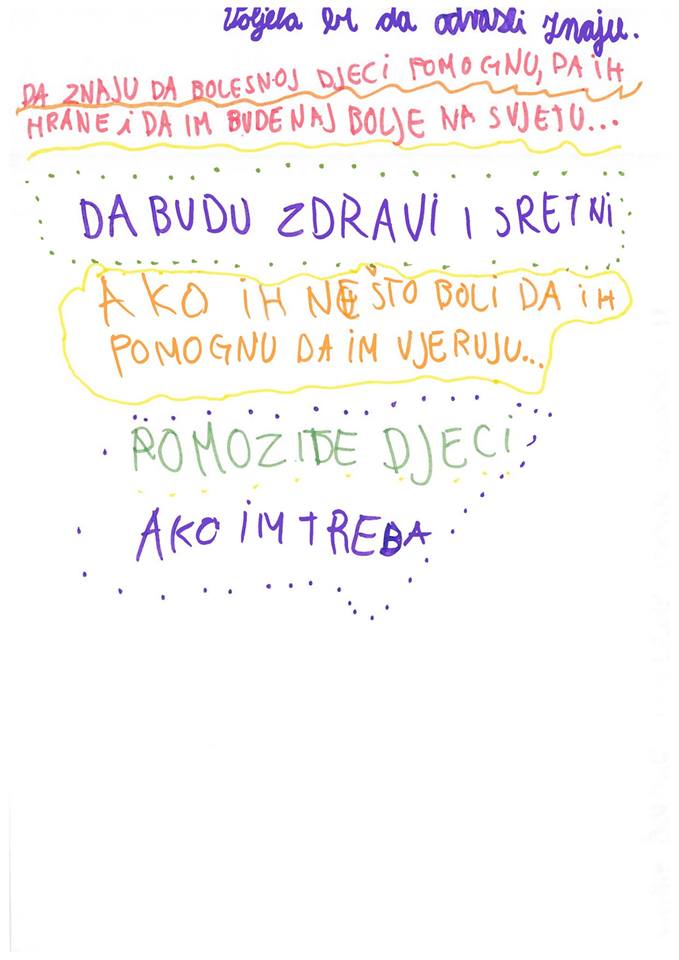 Voljela bi da odrasli znaju.
DA ZNAJU DA BOLESNOJ DJECI POMOGNU, DA IH
HRANE i DA IM BUDE NAJ BOLJE NA SVJETU...
DA BUDU ZDRAVI I SRETNI
AKO iH NEŠTO BOLI DA iH
POMOGNU DA iM VJERUJU...
POMOZITE DJECi
AKO iM TREBA